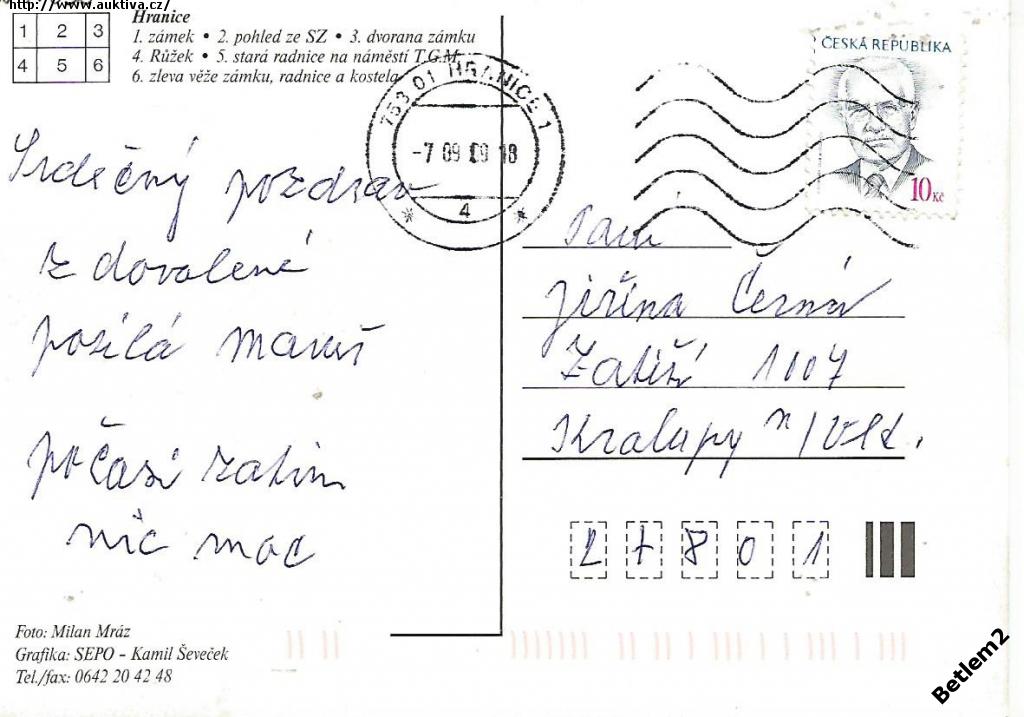 http://www.auktiva.cz/
1 2 3
4 5 6
Hranice
1. zámek • 2. pohled ze SZ • 3. dvorana zámku
4. Růžek • 5. stará radnice na náměstí T.G.M.
6. zleva věže zámku, radnice a kostela
753 01 HRANICE 1
-7 09 09 18
4
ČESKÁ REPUBLIKA
10 Kč
Srdečný pozdrav
z dovolené
posílá
počasí zatím
nic moc
Paní
Jiřina Černá
Zátiší 1007
Kralupy n/Vlt.
27801
Foto: Milan Mráz
Grafika: SEPO - Kamil Ševeček
Tel./fax: 0642 20 42 48
Betlem2